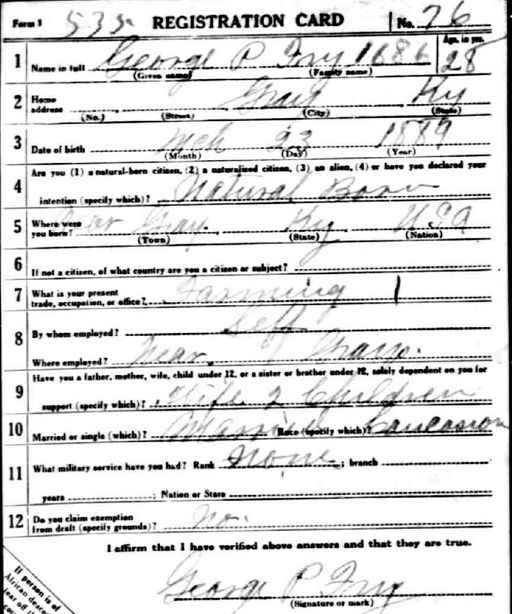 Form 1 535 REGISTRATION CARD No. 76
1 Name in full George P Fry 1686 Age, in yrs. 28
(Given name) (Family name)
2 Home address Gray Ky
(No.) (Street) (City) (State)
3 Date of birth Mch 22 1889
(Month) (Day) (Year)
4 Are you (1) a natural-born citizen, (2) a naturalized citizen, (3) an alien, (4) or have you declared your
intention (specify which)? Natural Born
5 Where were you born? Near Gray Ky USA
(Town) (State) (Nation)
6 If not a citizen, of what country are you a citizen or subject?
7 What is your present trade, occupation, or office? Farming 1
8 By whom employed? Self
Where employed? Near Gray
9 Have you a father, mother, wife, child under 12, or a sister or brother under 12, solely dependent on you for
support (specify which)? Wife 2 Children
10 Married or single (which)? Race (specify which)? Caucasion
11 What military service have you had? Rank None ; branch
years ; Nation or State
12 Do you claim exemption from draft (specify grounds)? No.
I affirm that I have verified above answers and that they are true.
George P Fry
(Signature or mark)
If person is of
African